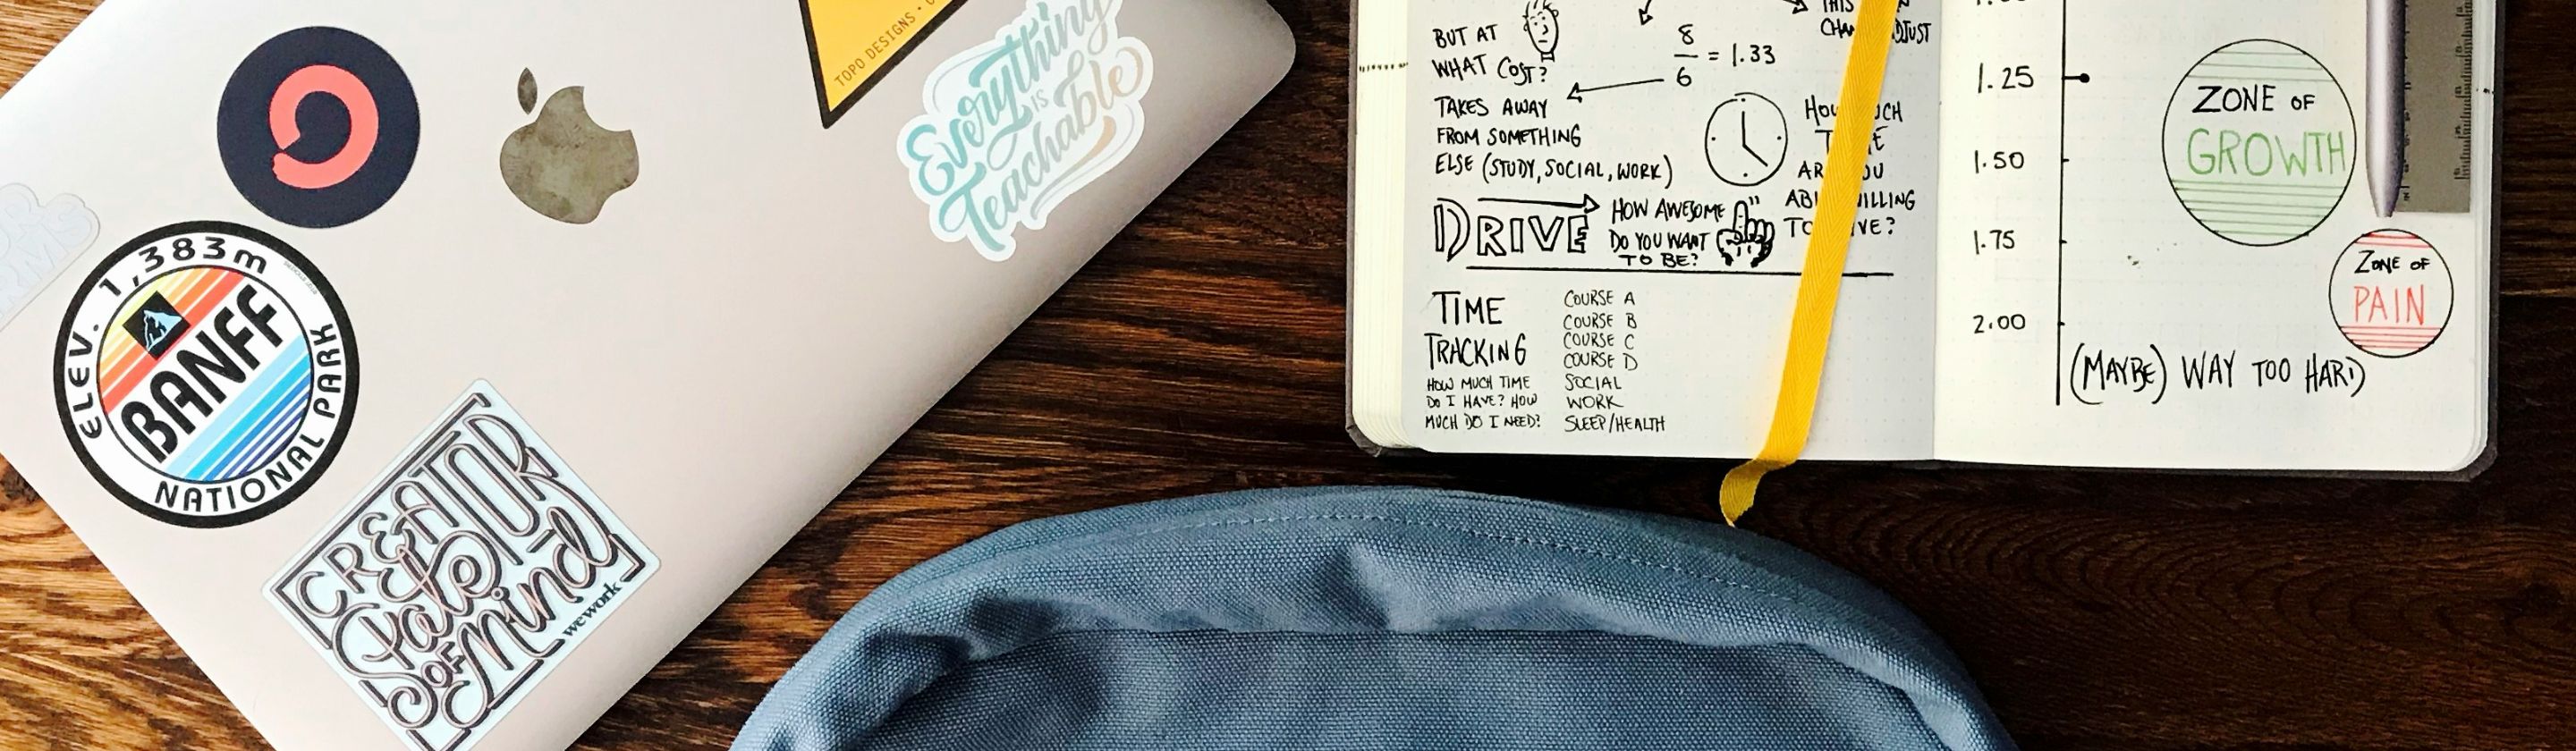 TOPO DESIGNS
Everything
IS
Teachable
ELEV. 1,383m
BANFF
NATIONAL PARK
CREATOR
State
OF
Mind
wework
BUT AT
WHAT COST?
8
6
= 1.33
THIS
TAKES AWAY
FROM SOMETHING
ELSE (STUDY, SOCIAL, WORK)
DRIVE
HOW AWESOME
DO YOU WANT
TO BE?
TIME
TRACKING
HOW MUCH TIME
DO I HAVE? HOW
MUCH DO I NEED?
COURSE A
COURSE B
COURSE C
COURSE D
SOCIAL
WORK
SLEEP/HEALTH
1.25
1.50
1.75
2.00
ZONE OF
GROWTH
ZONE OF
PAIN
(MAYBE) WAY TOO HARD